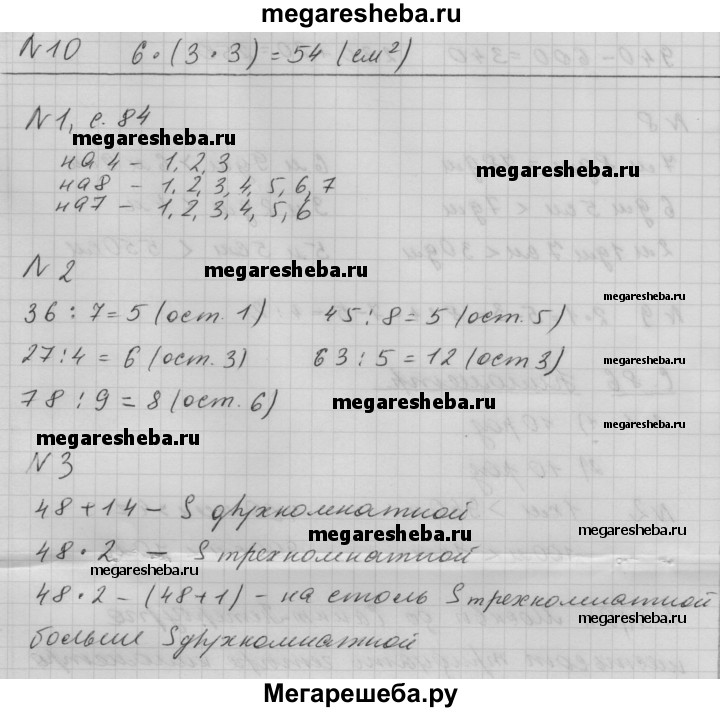 megaresheba.ru
N10 6·(3·3)=54 (см²)
N1, с. 84
megaresheba.ru
на 4 – 1, 2, 3
megaresheba.ru
на 8 – 1, 2, 3, 4, 5, 6, 7
на 7 – 1, 2, 3, 4, 5, 6
N 2
megaresheba.ru
megaresheba.ru
36 : 7 = 5 (ост. 1) 45 : 8 = 5 (ост. 5)
27 : 4 = 6 (ост. 3) 63 : 5 = 12 (ост 3)
78 : 9 = 8 (ост. 6) megaresheba.ru
megaresheba.ru
megaresheba.ru
N 3
48 + 14 – S двухкомнатной
megaresheba.ru
megaresheba.ru
48 · 2 – S трехкомнатной
megaresheba.ru
48 · 2 – (48 + 1) – на столь S трехкомнатной
megaresheba.ru
больше S двухкомнатной
Мегарешеба.ру